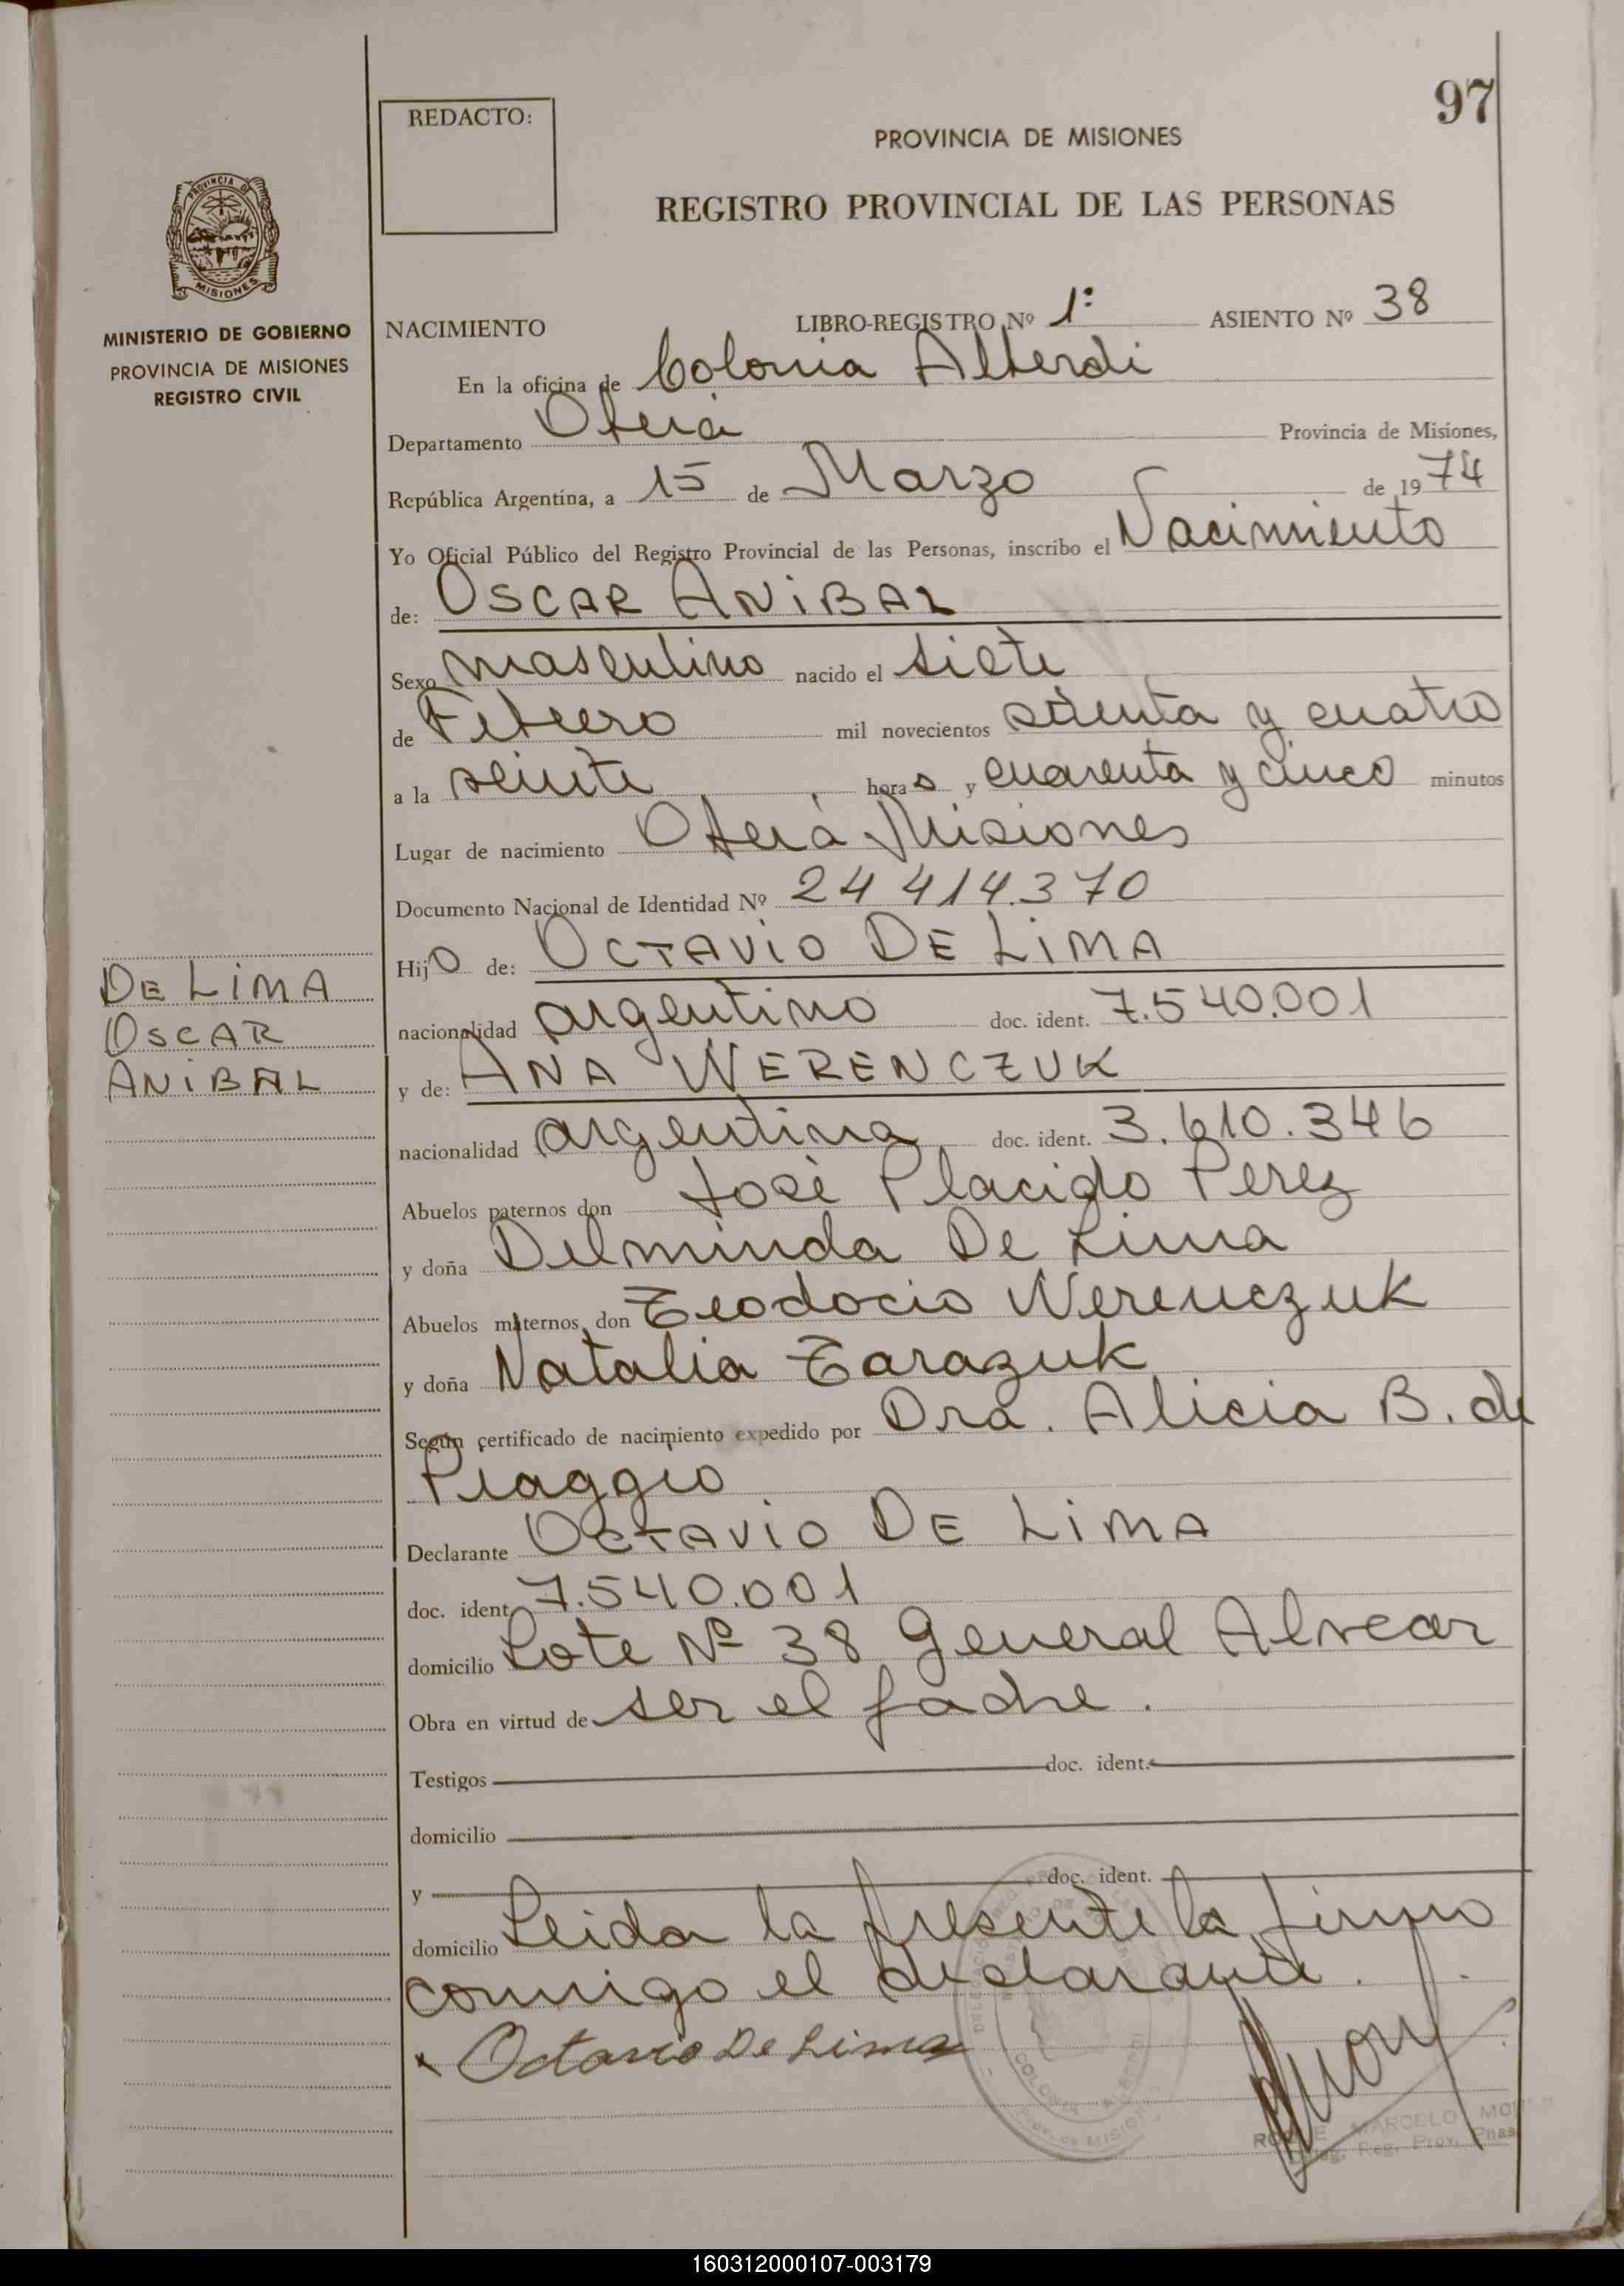 97
REDACTO:
PROVINCIA DE MISIONES
REGISTRO PROVINCIAL DE LAS PERSONAS
PROVINCIA DE
MISIONES
MINISTERIO DE GOBIERNO
PROVINCIA DE MISIONES
REGISTRO CIVIL
NACIMIENTO LIBRO-REGISTRO Nº 1º ASIENTO Nº 38
En la oficina de Colonia Alberdi
Departamento Oberá Provincia de Misiones,
República Argentina, a 15 de Marzo de 1974
Yo Oficial Público del Registro Provincial de las Personas, inscribo el Nacimiento
de: OSCAR ANIBAL
Sexo masculino nacido el siete
de Febrero mil novecientos setenta y cuatro
a la veinte horas y cuarenta y cinco minutos
Lugar de nacimiento Oberá Misiones
Documento Nacional de Identidad Nº 24 414.370
Hijo de: OCTAVIO DE LIMA
nacionalidad argentino doc. ident. 7.540.001
y de: ANA WERENCZUK
nacionalidad argentina doc. ident. 3.610.346
DE LIMA
OSCAR
ANIBAL
Abuelos paternos don José Placido Perez
y doña Delminda De Lima
Abuelos maternos don Teodocio Werenczuk
y doña Natalia Tarazuk
Según certificado de nacimiento expedido por Dra. Alicia B. de
Piaggio
Declarante OCTAVIO DE LIMA
doc. ident. 7.540.001
domicilio Lote Nº 38 General Alvear
Obra en virtud de ser el padre.
Testigos doc. ident.
domicilio
y doc. ident.
domicilio Leida la presente la firma
conmigo el declarante.
Octavio De Lima
COLONIA ALBERDI
Prov. de MISIONES
MARCELO
Reg. Prov. Pnas
160312000107-003179